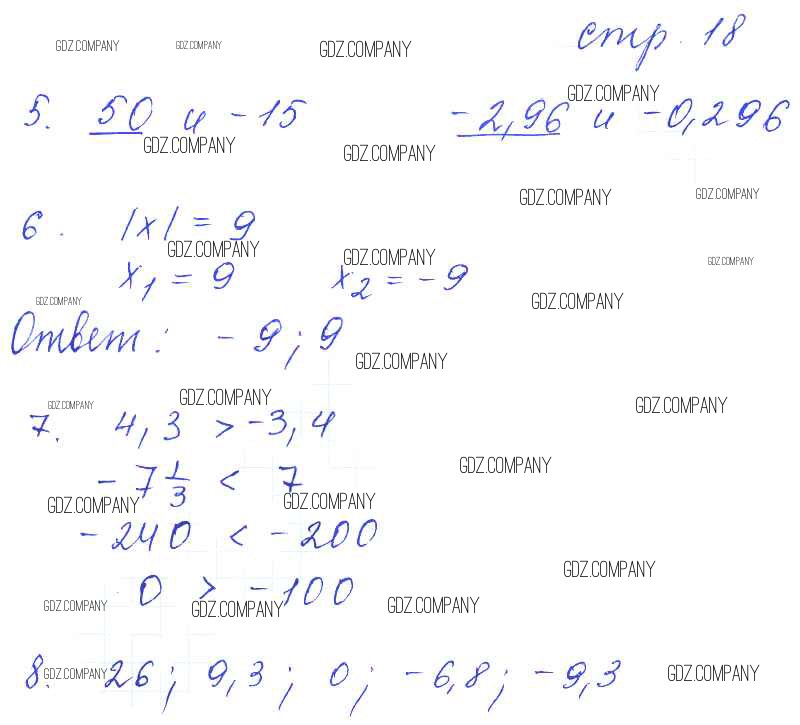 GDZ.COMPANY GDZ.COMPANY GDZ.COMPANY стр. 18
GDZ.COMPANY
5. 50 и -15 -2,96 и -0,296
GDZ.COMPANY GDZ.COMPANY
GDZ.COMPANY GDZ.COMPANY
6. |x| = 9
GDZ.COMPANY GDZ.COMPANY GDZ.COMPANY
x₁ = 9 x₂ = -9
GDZ.COMPANY GDZ.COMPANY
Ответ: -9; 9
GDZ.COMPANY
GDZ.COMPANY GDZ.COMPANY GDZ.COMPANY
7. 4,3 > -3,4
GDZ.COMPANY
-7 1/3 < 7
GDZ.COMPANY GDZ.COMPANY
-240 < -200
GDZ.COMPANY
0 > -100
GDZ.COMPANY GDZ.COMPANY GDZ.COMPANY
8. 26; 9,3; 0; -6,8; -9,3
GDZ.COMPANY GDZ.COMPANY